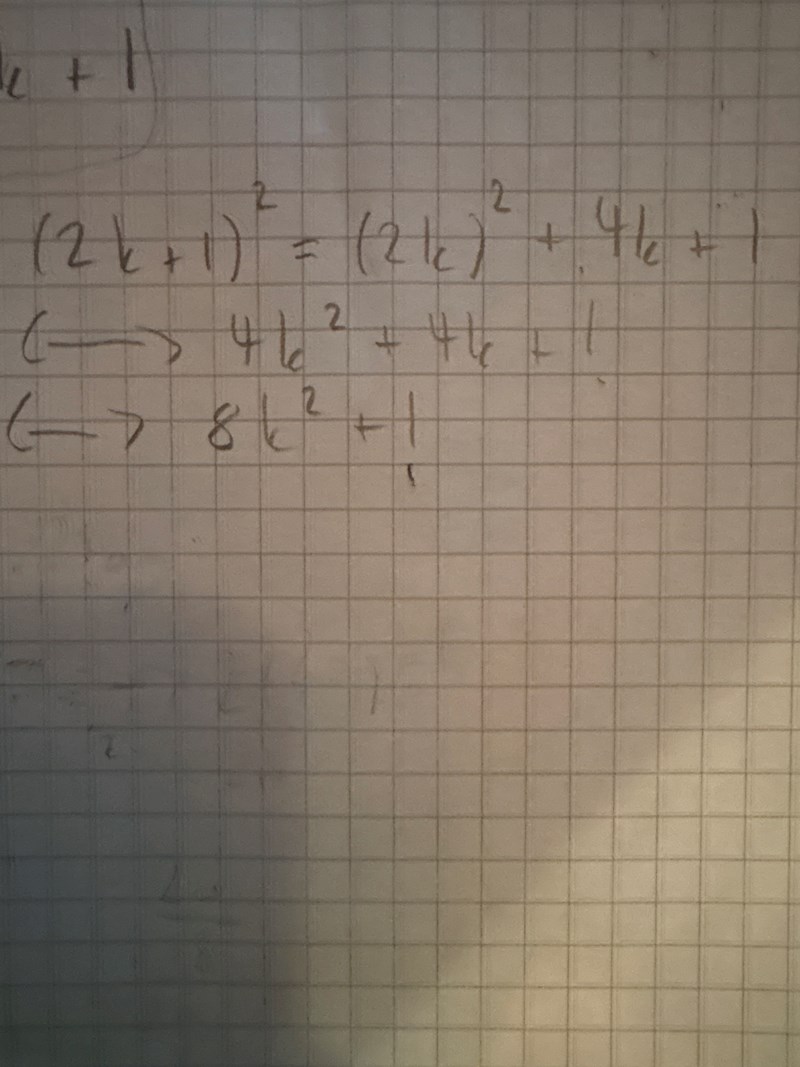 k + 1
(2k+1)² = (2k)² + 4k + 1
⟷ 4k² + 4k + 1
⟷ 8k² + 1